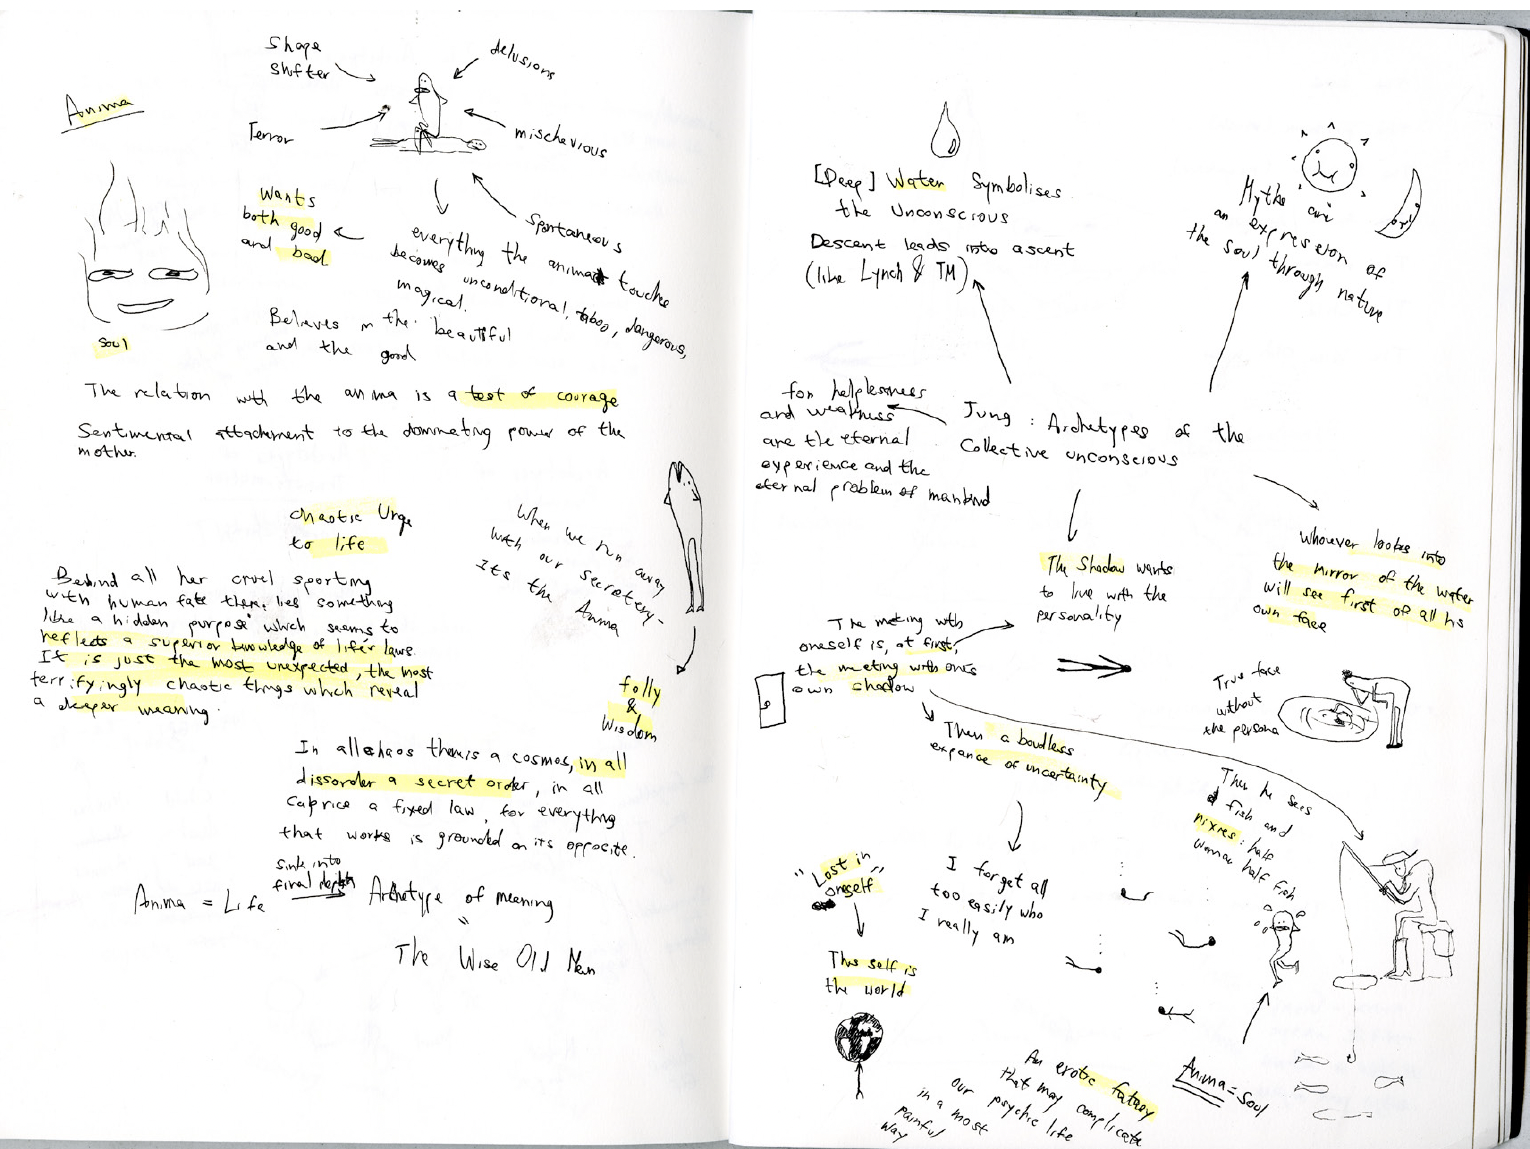 Anima
Shape
Shifter
delusions
Terror
mischavious
Spontaneous
Wants
both good
and bad
everything the anima touche
becomes unconditional, taboo, dangerous,
magical.
Believes in the beautiful
and the good
soul
The relation with the anima is a test of courage
Sentimental attachement to the dominating power of the
mother.
chaotic Urge
to life
When we run away
with our secretery-
Its the Anima
Behind all her cruel sporting
with human fate there lies something
like a hidden purpose which seems to
reflects a superior knowledge of life's laws
It is just the most unexpected, the most
terrifyingly chaotic things which reveal
a deeper meaning.
folly
&
Wisdom
In all chaos there is a cosmos, in all
dissorder a secret order, in all
caprice a fixed law, for everything
that works is grounded on its opposite.
sink into
final depth
Anima = Life
Archetype of meaning
"
The Wise Old Man
[Deep] Water Symbolises
the Unconscious
Descent leads into ascent
(like Lynch & TM)
Myths are
an expression of
the soul through nature
for helplessness
and weakness
are the eternal
experience and the
eternal problem of mankind
Jung : Archetypes of the
Collective unconscious
The Shadow wants
to live with the
personality
whoever looks into
the mirror of the water
will see first of all his
own face
The meting with
oneself is, at first,
the meeting with one's
own shadow
True face
without
the persona
Then a boudless
expance of uncertainty
Then he sees
fish and
nixies: half
woman half fish
"Lost in
oneself"
I forget all
too easily who
I really am
This self is
the world
Anima = Soul
An erotic fatasy
that may complicate
our psychic life
in a most
painful
way